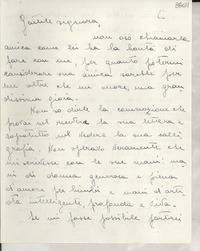 Gentile signora,
non oso chiamarla
amica come lei ha la bontà di
fare con me, per quanto potermi
considerare sua amica sarebbe per
me oltre che un onore, una gran-
dissima gioia.
Non so dirle la commozione che
provai nel ricevere la sua lettera e
sopratutto nel vedere la sua calli-
grafia. Non speravo veramente che
mi scrivesse con le sue mani: ma-
ni di donna generosa e piena
d'amore per i bimbi e mani d'arti-
sta intelligente, profonda e viva.
Se mi fosse possibile